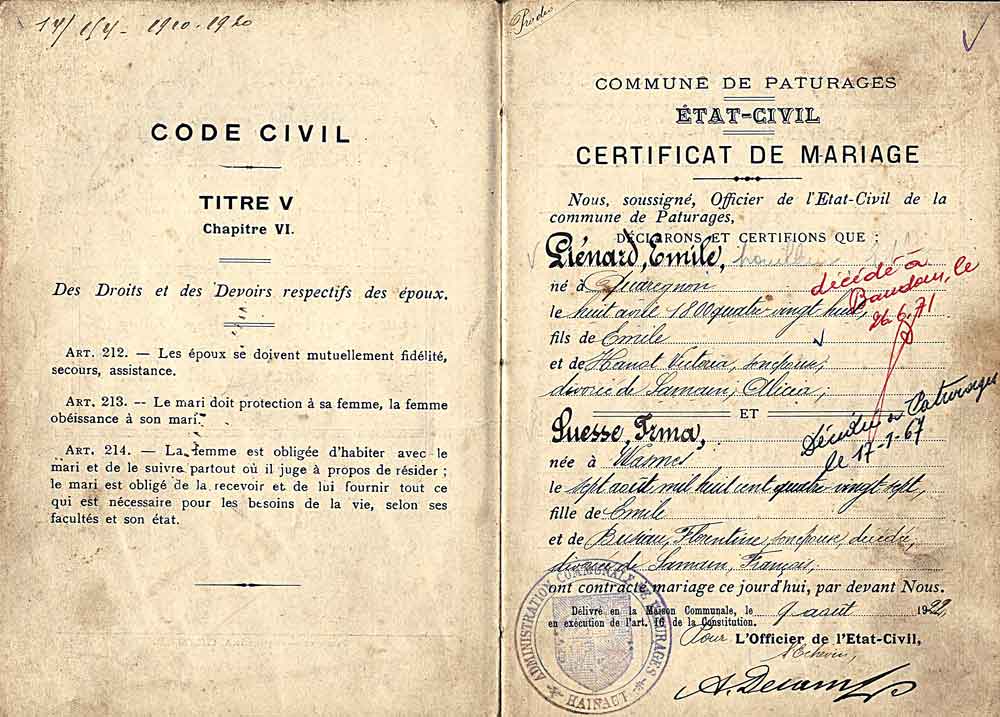 1910-1920
CODE CIVIL
TITRE V
Chapitre VI.
Des Droits et des Devoirs respectifs des époux.
ART. 212. — Les époux se doivent mutuellement fidélité,
secours, assistance.
ART. 213. -- Le mari doit protection à sa femme, la femme
obéissance à son mari.
ART. 214. — La femme est obligée d'habiter avec le
mari et de le suivre partout où il juge à propos de résider ;
le mari est obligé de la recevoir et de lui fournir tout ce
qui est nécessaire pour les besoins de la vie, selon ses
facultés et son état.
COMMUNE DE PATURAGES
ÉTAT-CIVIL
CERTIFICAT DE MARIAGE
Nous, soussigné, Officier de l'Etat-Civil de la
commune de Paturages,
DÉCLARONS ET CERTIFIONS QUE :
Liénard, Emile,
né à Quaregnon
le huit avril 1800 quatre-vingt huit,
fils de Emile
et de Hanot Victoria, son épouse,
divorcé de Samain, Alicia,
décédé à
Baudour, le
26.6.71
ET
Luesse, Irma,
Décédée à Paturages
le 17-1-67
née à Wasmes
le sept août mil huit cent quatre-vingt sept,
fille de Emile
et de Busiau, Florentine, son épouse, décédée,
divorcée de Samain, François,
ont contracté mariage ce jourd'hui, par devant Nous.
Délivré en la Maison Communale, le 9 août 1922,
en exécution de l'art. 16 de la Constitution.
Pour L'Officier de l'Etat-Civil,
l'Echevin,
ADMINISTRATION COMMUNALE DE PATURAGES
HAINAUT